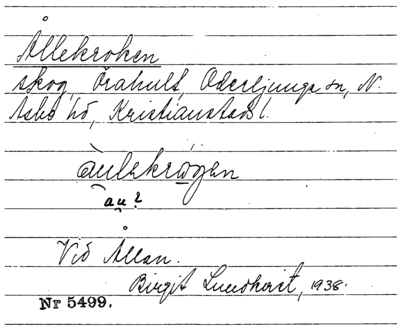 Ållekroken
skog, Örahult, Oderljunga sn, N.
Åsbo hd, Kristianstads l.
aulekrogen
au?
Vid Ållan.
Birgit Lundkvist, 1938.
Nr 5499.